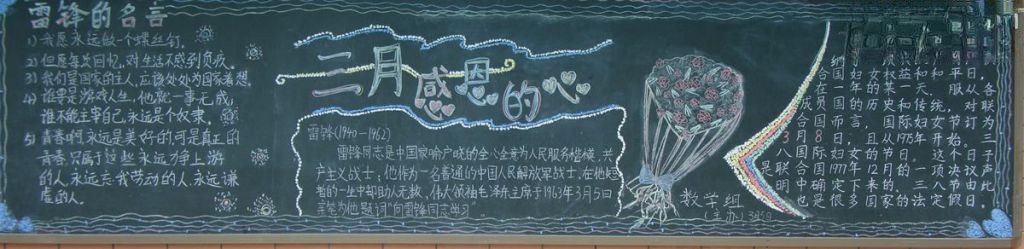 雷锋的名言
1) 我愿永远做一个螺丝钉.
2) 但愿每次回忆,对生活不感到负疚.
3) 我们是国家的主人,应该处处为国家着想.
4) 谁要是游戏人生,他就一事无成;
谁不能主宰自己,永远是个奴隶.
5) 青春啊,永远是美好的,可是真正的
青春,只属于这些永远力争上游
的人,永远忘我劳动的人,永远谦
虚的人.
三月
感恩的心
雷锋(1940-1962)
雷锋同志是中国家喻户晓的全心全意为人民服务楷模,共
产主义战士,他作为一名普通的中国人民解放军战士,在他短
暂的一生中却助人无数,伟大领袖毛泽东主席于1963年3月5日
亲笔为他题词"向雷锋同志学习
数学组
(主办)
合国妇女权益和和平日,
在一年的某一天.服从各
成员国的历史和传统.对联
合国而言,国际妇女节订为
3月8日,且从1975年开始。三
八国际妇女的节日。这个日子
是联合国1977年12月的一项决议声
明中确定下来的.三八节由此
也是很多国家的法定假日。